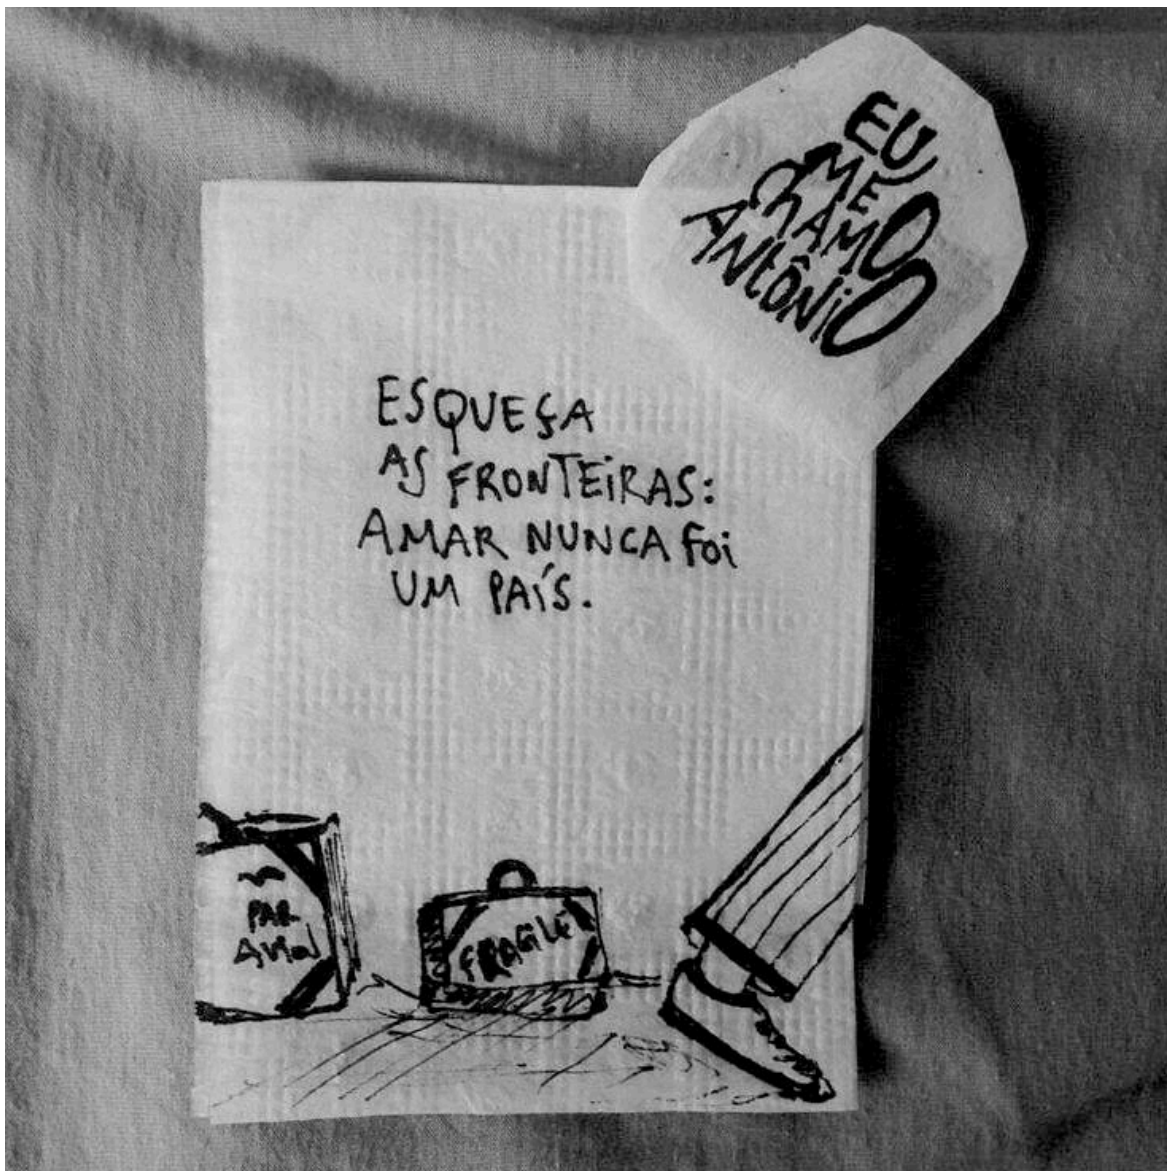 EU
ME
CHAMO
ANTÔNIO
ESQUEÇA
AS FRONTEIRAS:
AMAR NUNCA FOI
UM PAÍS.
PAR
AVION
FRAGILE